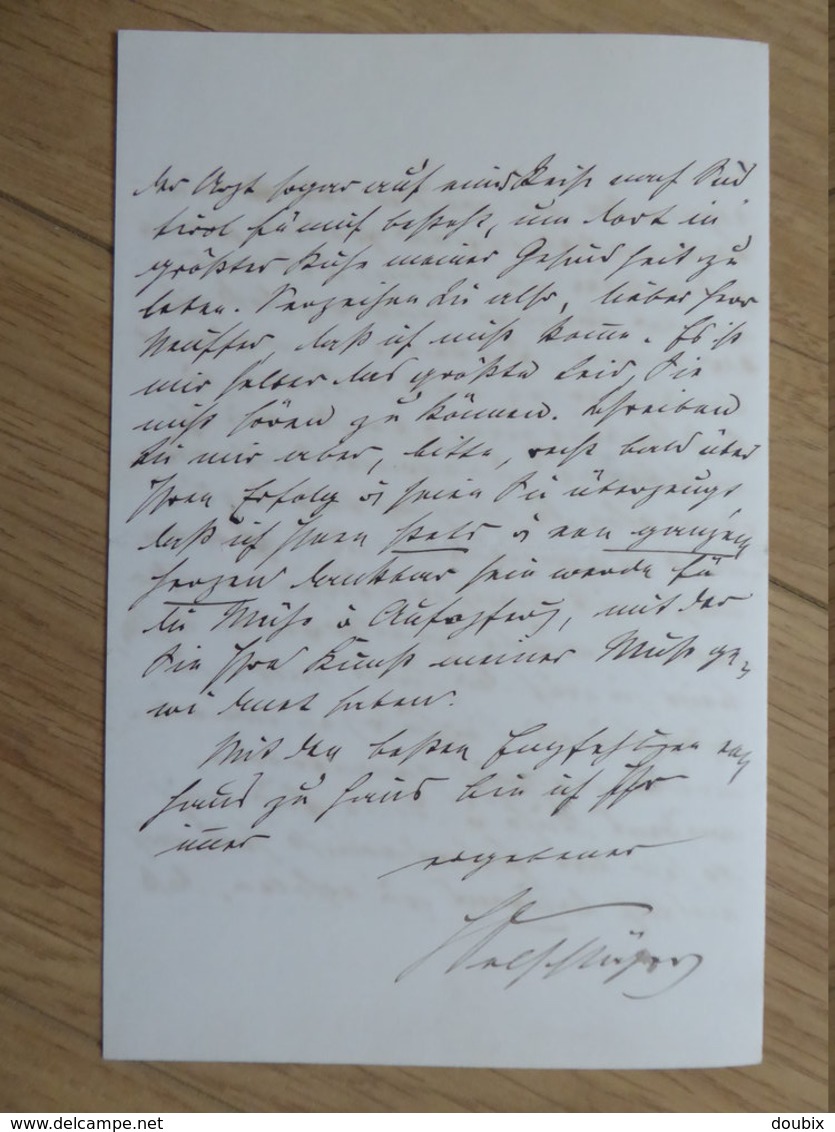 der Arzt sogar auf einer Reise nach Süd
tirol für mich besteht, um dort in
größter Ruhe meiner Gesundheit zu
leben. Verzeihen Sie also, lieber Herr
Neuffer, daß ich nicht komme. Es ist
mir selber das größte Leid, Sie
nicht hören zu können. Schreiben
Sie mir aber, bitte, recht bald über
Ihren Erfolg u seien Sie überzeugt
daß ich Ihnen stets u von ganzem
Herzen dankbar sein werde für
die Mühe u Aufopferg, mit der
Sie Ihre Kunst meiner Muse ge=
widmet haben.
Mit den besten Empfehlungen von
Haus zu Haus bin ich Ihr
immer
ergebener
www.delcampe.net
doubix